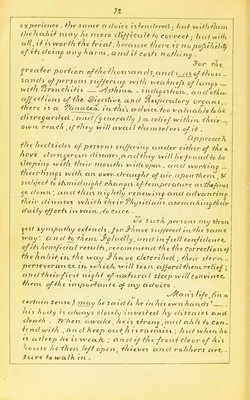 72
experience, the same advice is tendered; but with them
the habit may be more difficult to correct; but with
all, it is worth the trial, because there is no possibility
of its doing any harm, and it costs nothing.
For the
greater portion of the thousands, and      of thou-
sands of persons suffering with weakness of lungs —
with Bronchitis — Asthma — indigestion, and other
affections of the Digestive and Respiratory organs,
there is a Panacea in this advice too valuable to be
disregarded, and (generally) a relief within their
own reach, if they will avail themselves of it.
Approach
the bedsides of persons suffering under either of the a-
bove dangerous diseases, and they will be found to be
sleeping with their mouths wide open, and working
their lungs with an over-draught of air upon them, &
subject to its midnight changes of temperature as the fire
goes down; and thus nightly renewing and advancing
their diseases which their Physicians are making their
daily efforts in vain, to cure.
To such persons my stron-
gest sympathy extends, for I have suffered in the same
way: and to them I boldly, and in full confidence
of its beneficial results, recommend the correction of
the habit in the way I have described; their stern
perseverance in which will soon afford them relief;
and their first night of natural sleep will convince
them of the importance of my advice.
Man's life, (in a
certain sense) may be said to be in his own hands —
his body is always closely invested by diseases and
death. When awake, he is strong, and able to con-
tend with, and keep out his enemies; but when he
is asleep he is weak; and if the front door of his
house be then left open, thieves and robbers are
sure to walk in.